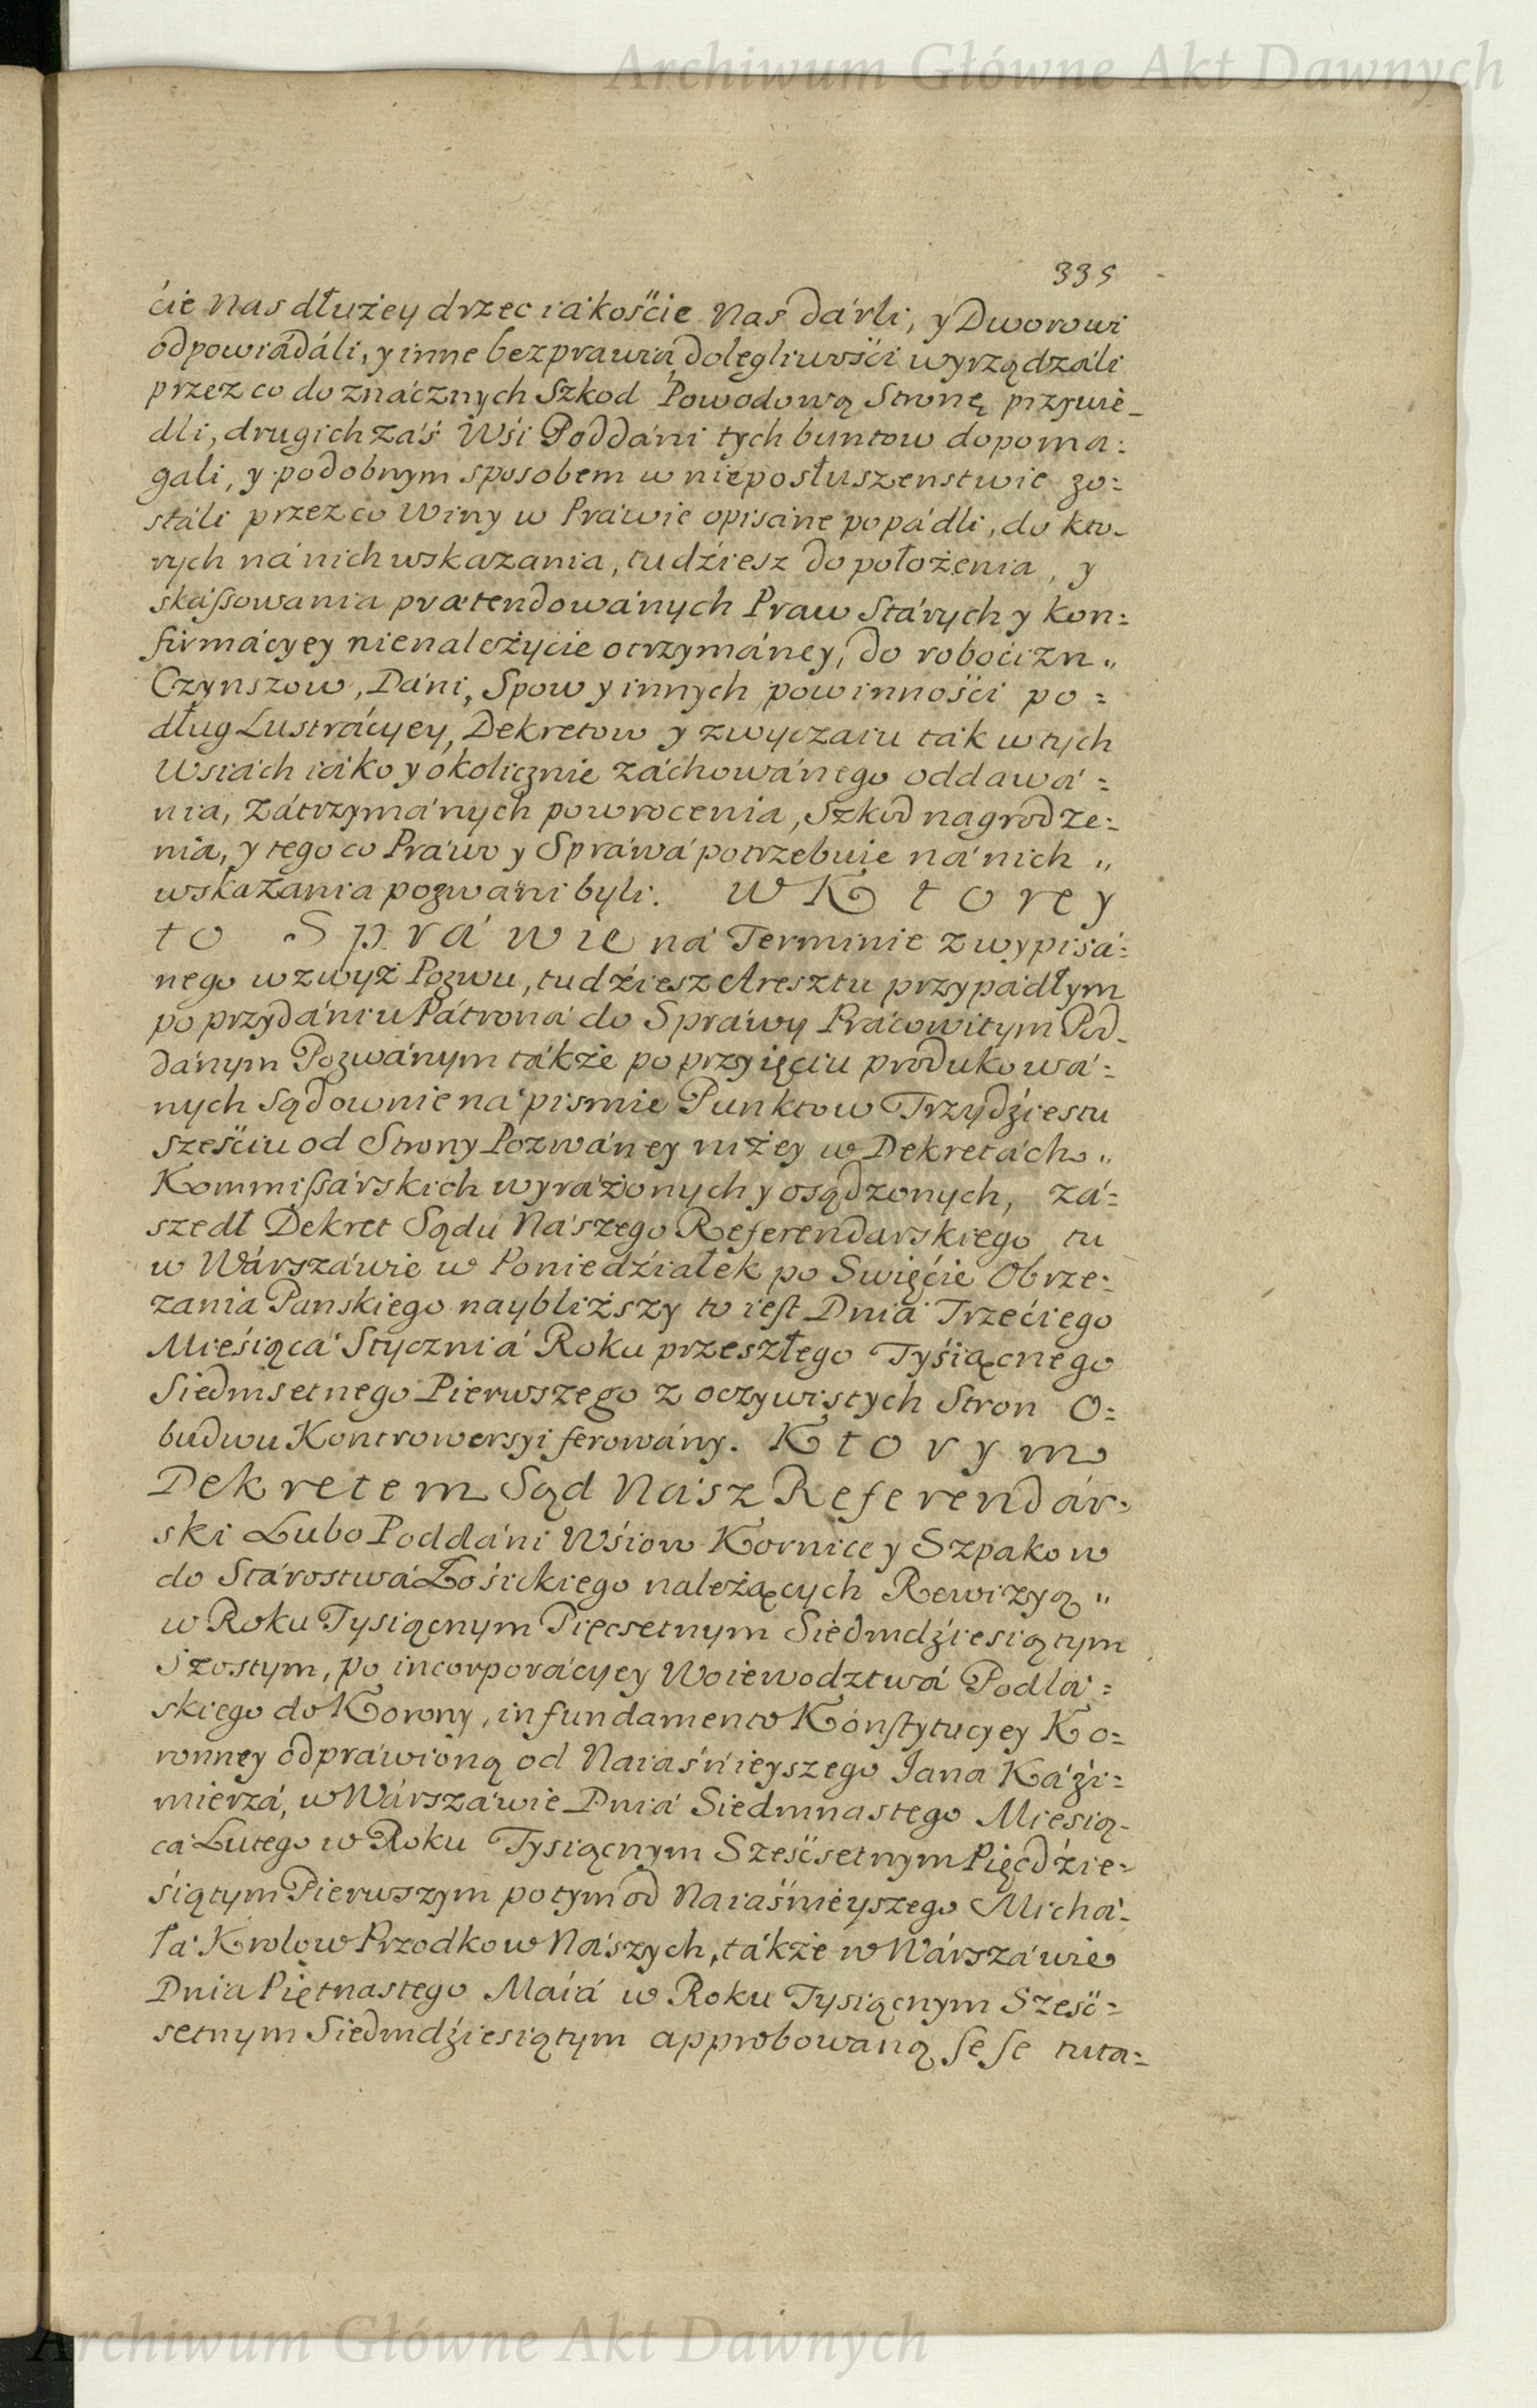 Archiwum Główne Akt Dawnych
335
ćie Nas dłużey drzec iákośćie Nas dárli, y Dworowi
odpowiádáli, y inne bezprawia, dolęgliwośći wyrządzáli
przez co do znácznych Szkod Powodową Stronę przywie_
dli, drugich záś Wśi Poddáni tych buntow dopoma:
gali, y podobnym sposobem w nieposłuszenstwie zo:
stáli przez co Winy w Práwie opisáne popádli, do kto_
rych ná nich wskazania, tudźiesz do położenia, y
skáßowania prætendowánych Praw Stárych y kon:
firmácyey nienależycie otrzymáney, do roboćizn "
Czynszow, Dáni, Spow y innych powinnośći po =
dług Lustrácyey, Dekretow y zwyczaiu ták w tych
Wsiách iáko y okolicznie záchowánego oddawá =
nia, zátrzymánych powrocenia, Szkod nagrodze:
nia, y tego co Práwo y Spráwá potrzebuie ná nich "
wskazania pozwáni byli. W Ktorey
to Spráwie ná Terminie z wypisá:
nego wzwyż Pozwu, tudźiesz Aresztu przypádłym
po przydániu Pátroná do Spráwy Prácowitym Pod_
dánym Pozwánym tákże po przyięćiu produkowá:
nych Sądownie ná pismie Punktow Trzydźiestu
sześćiu od Strony Pozwáney niżey w Dekretách "
Kommißárskich wyráżonych y osądzonych, zá:
szedł Dekret Sądu Nászego Referendarskiego tu
w Wárszáwie w Poniedźiałek po Swięćie Obrze:
zania Panskiego naybliższy to iest Dniá Trzećiego
Mieśiącá Styczniá Roku przeszłego Tyśiącnego
Siedmsetnego Pierwszego z oczywistych Stron O:
budwu Kontrowersyi ferowány. Ktorym
Dekretem Sąd Nász Referendár:
ski Lubo Poddáni Wśiow Kornice y Szpakow
do Stárostwá Łośickiego należących Rewizyą "
w Roku Tysiącnym Pięcsetnym Siedmdźiesiątym
Szostym, po incorporácyey Woiewodztwá Podlá:
skiego do Korony, in fundamento Konstytucyey Ko:
ronney odpráwioną od Naiaśńieyszego Jana Káźi:
mierzá, w Wárszáwie Dniá Siedmnastego Miesią_
cá Lutego w Roku Tysiącnym Sześćsetnym Pięcdźie:
śiątym Pierwszym potym od Naiaśnieyszego Michá:
łá Krolow Przodkow Nászych, tákże w Wárszáwie
Dnia Piętnastego Maiá w Roku Tysiącnym Sześć:
setnym Siedmdźiesiątym approbowaną sese tuta:
Archiwum Główne Akt Dawnych